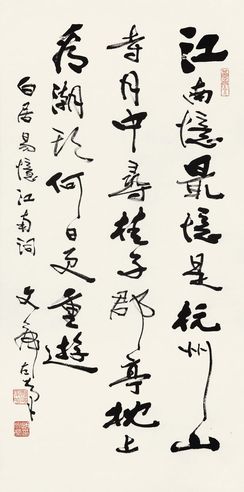 江南憶最憶是杭州山
寺月中尋桂子郡亭枕上
看潮頭何日更重遊
白居易憶江南詞
文